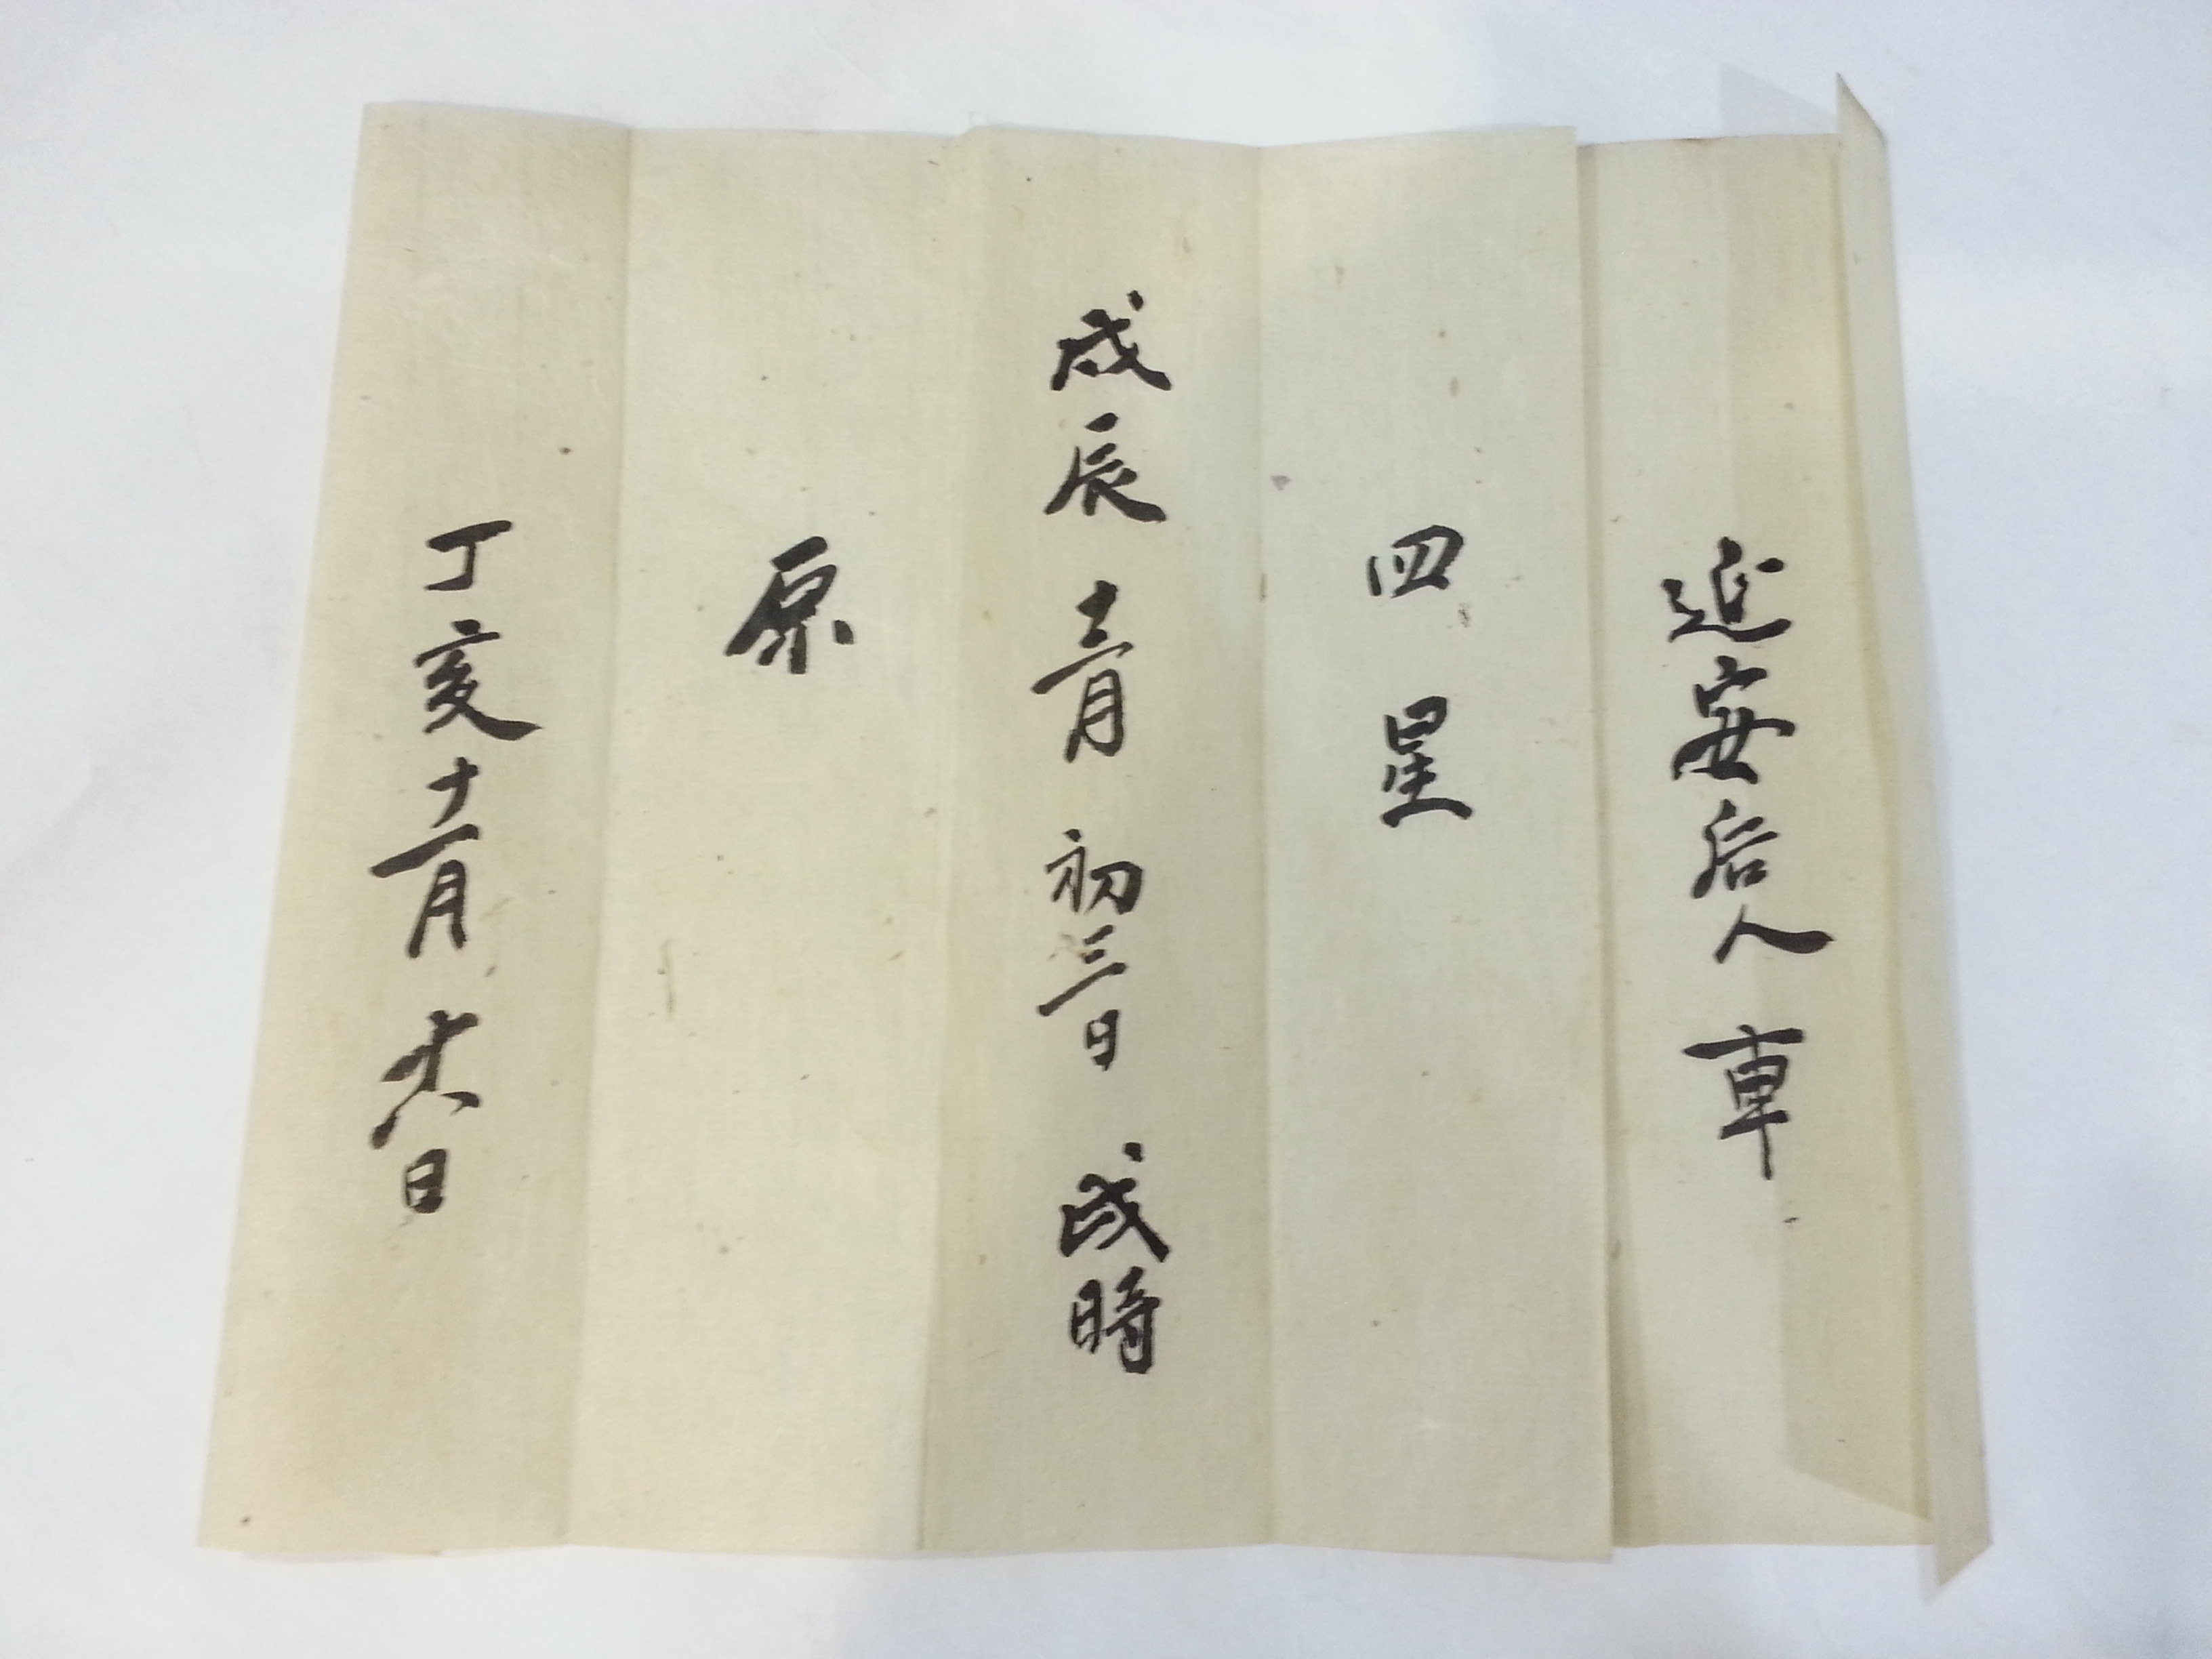 延安后人 車
四星
戊辰 十二月 初三日 戌時
原
丁亥十一月 十六日